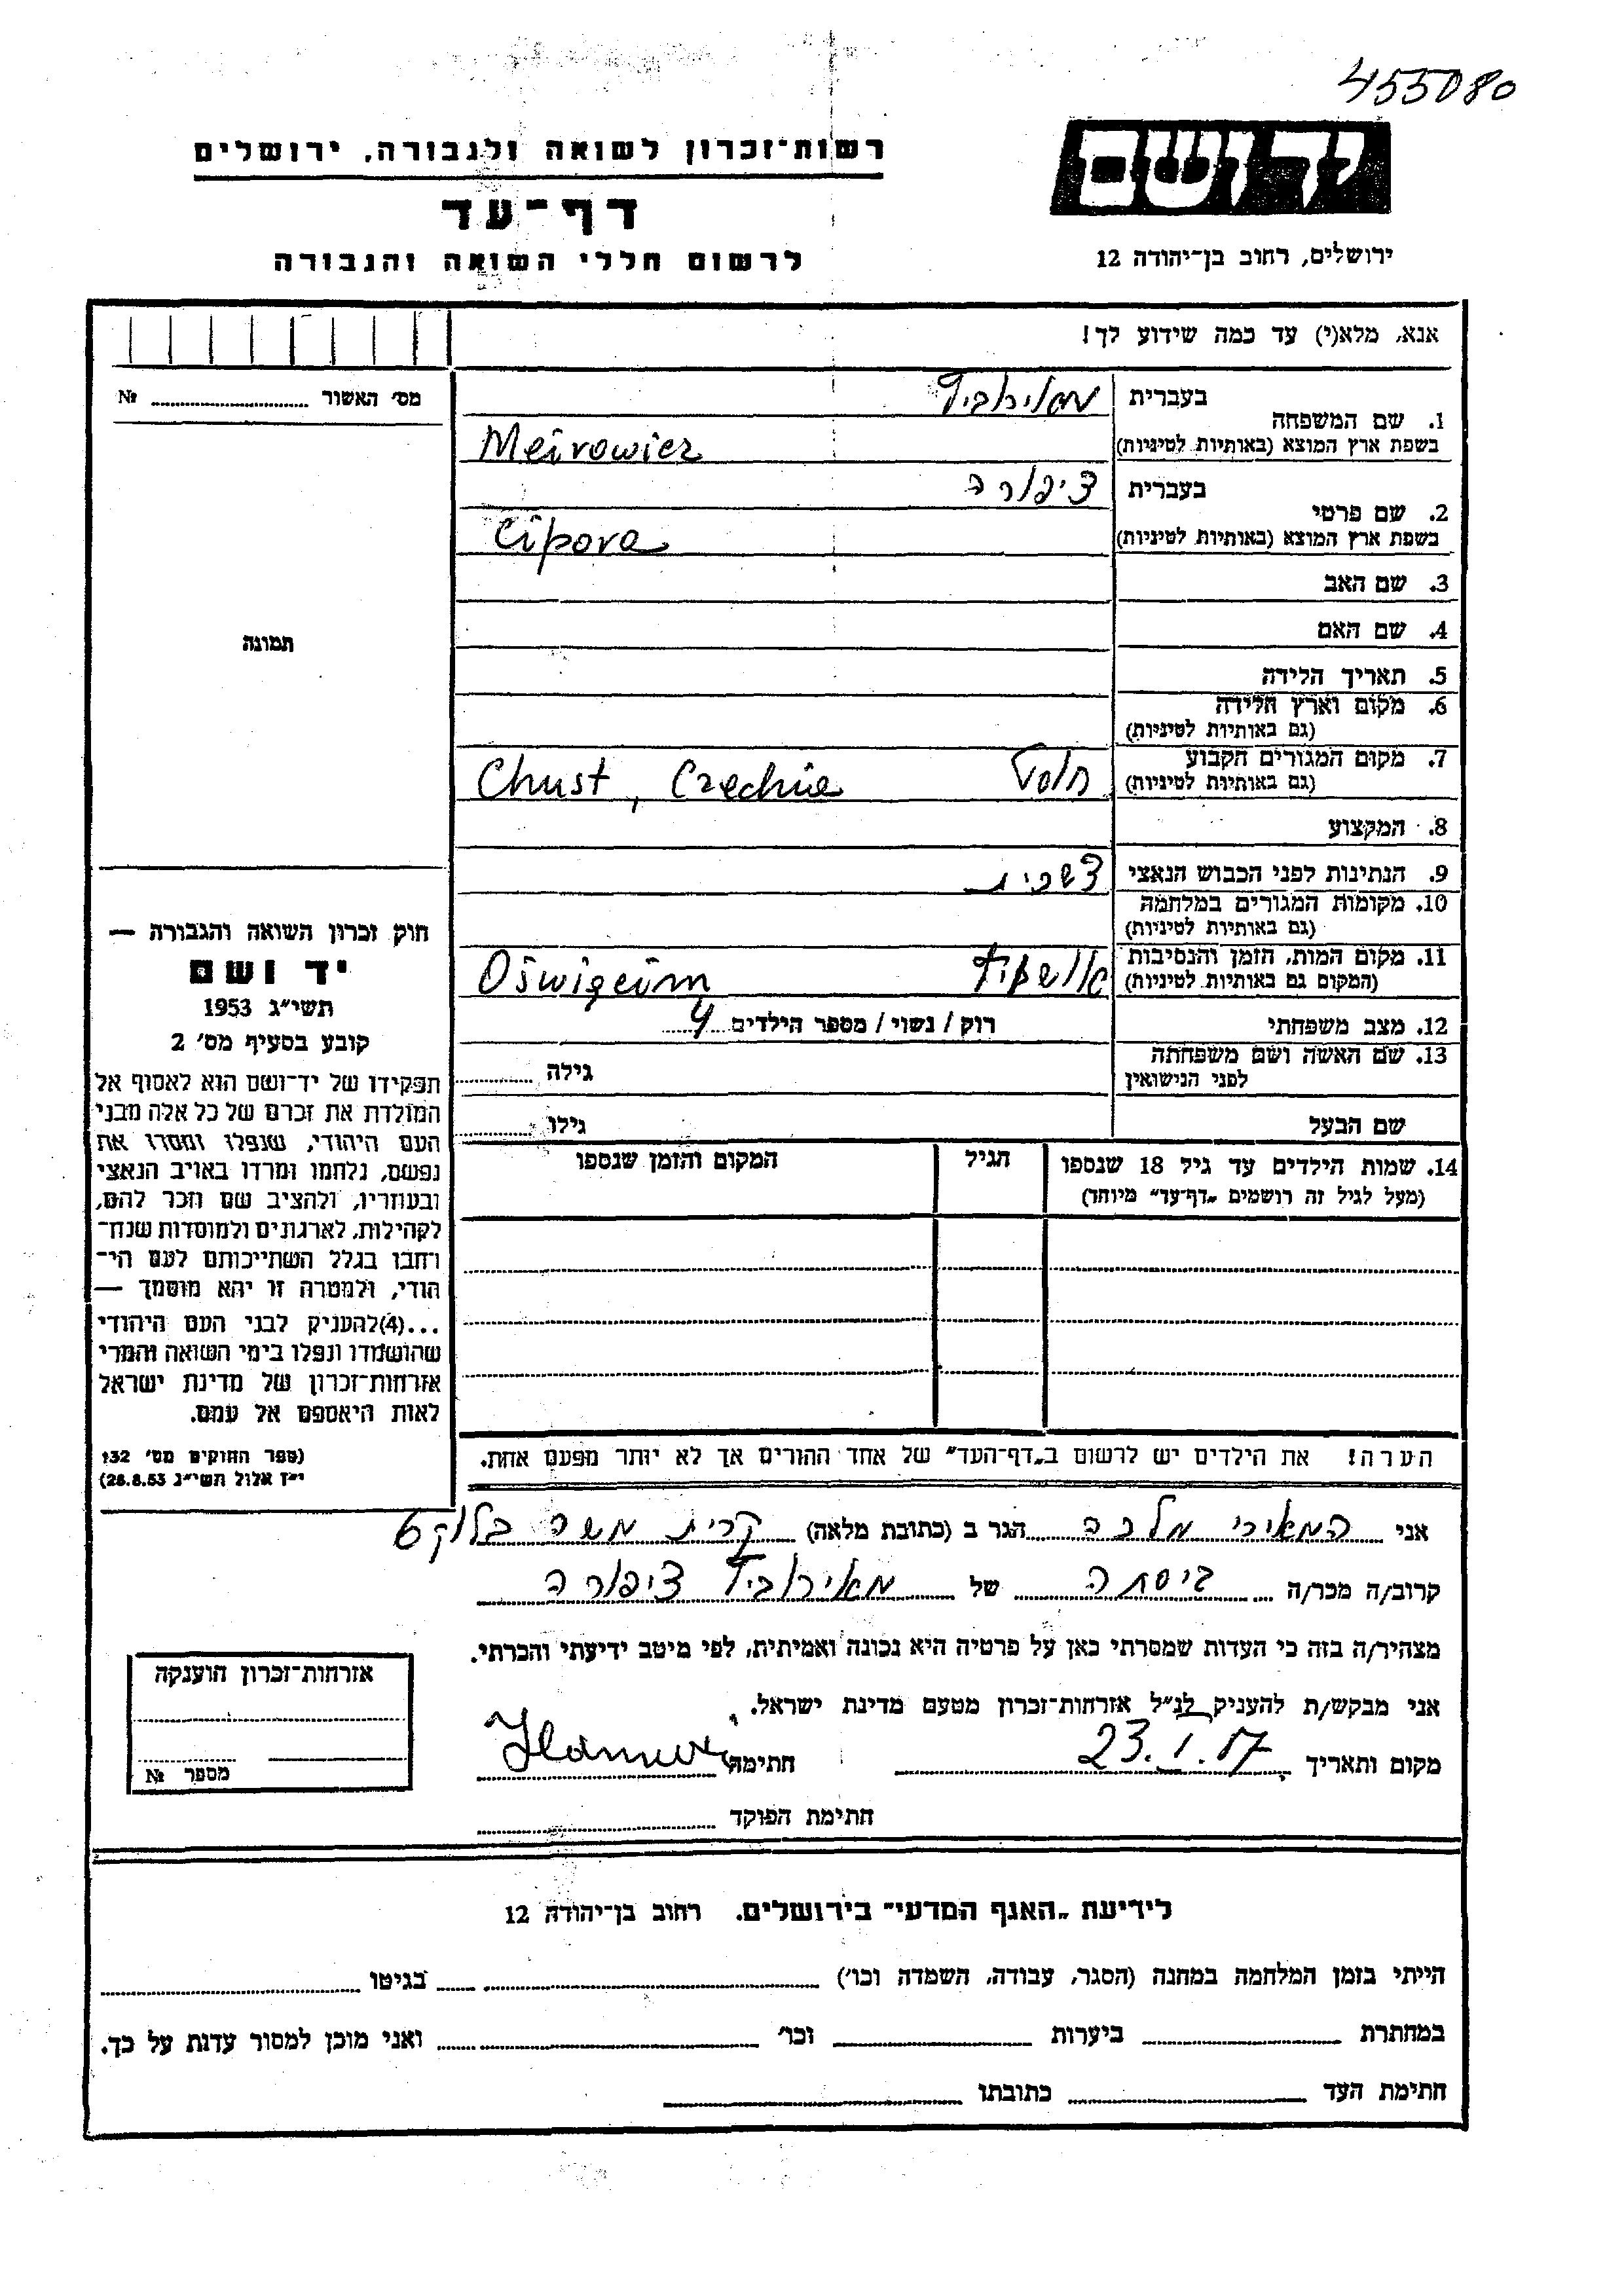 455080
יד ושם
רשות-זכרון לשואה ולגבורה, ירושלים
דף-עד
לרשום חללי השואה והגבורה
ירושלים, רחוב בן-יהודה 12
אנא, מלא(י) עד כמה שידוע לך!
מס' האשור № 
1. שם המשפחה
בעברית
בשפת ארץ המוצא (באותיות לטיניות) Meirowicz
2. שם פרטי
בעברית ציפורה
בשפת ארץ המוצא (באותיות לטיניות) Cipora
3. שם האב
4. שם האם
תמונה
5. תאריך הלידה
6. מקום וארץ הלידה
(גם באותיות לטיניות)
7. מקום המגורים הקבוע
(גם באותיות לטיניות) חוסט Chust, Czechie
8. המקצוע
9. הנתינות לפני הכבוש הנאצי צ'כית
10. מקומות המגורים במלחמה
(גם באותיות לטיניות)
11. מקום המות, הזמן והנסיבות
(המקום גם באותיות לטיניות)
12. מצב משפחתי רוק / נשוי / מספר הילדים 4
13. שם האשה ושם משפחתה
לפני הנישואין גילה
שם הבעל גילו
14. שמות הילדים עד גיל 18 שנספו
(מעל לגיל זה רושמים „דף-עד" מיוחד)
הגיל
המקום והזמן שנספו
חוק זכרון השואה והגבורה —
יד ושם
תשי"ג 1953
קובע בסעיף מס' 2
תפקידו של יד-ושם הוא לאסוף אל
המולדת את זכרם של כל אלה מבני
העם היהודי, שנפלו ומסרו את
נפשם, נלחמו ומרדו באויב הנאצי
ובעוזריו, ולהציב שם וזכר להם,
לקהילות, לארגונים ולמוסדות שנח-
רבו בגלל השתייכותם לעם הי-
הודי, ולמטרה זו יהא מוסמך —
...(4) להעניק לבני העם היהודי
שהושמדו ונפלו בימי השואה והמרי
אזרחות-זכרון של מדינת ישראל
לאות היאספם אל עמם.
(ספר החוקים מס' 132
י"ז אלול תשי"ג 28.8.53)
הערה! את הילדים יש לרשום ב„דף-העד" של אחד ההורים אך לא יותר מפעם אחת.
אני המאירי מלכה הגר ב (כתובת מלאה) קרית משה בלוק 6
קרוב/ה מכר/ה גיסתה של מאירוביץ ציפורה
מצהיר/ה בזה כי העדות שמסרתי כאן על פרטיה היא נכונה ואמיתית, לפי מיטב ידיעתי והכרתי.
אני מבקש/ת להעניק לנ"ל אזרחות-זכרון מטעם מדינת ישראל.
מקום ותאריך 23.1.57 חתימה
חתימת הפוקד
אזרחות-זכרון הוענקה
מספר №
לידיעת „האגף המדעי" בירושלים. רחוב בן-יהודה 12
הייתי בזמן המלחמה במחנה (הסגר, עבודה, השמדה וכו') בגיטו
במחתרת ביערות וכו' ואני מוכן למסור עדות על כך.
חתימת העד כתובתו